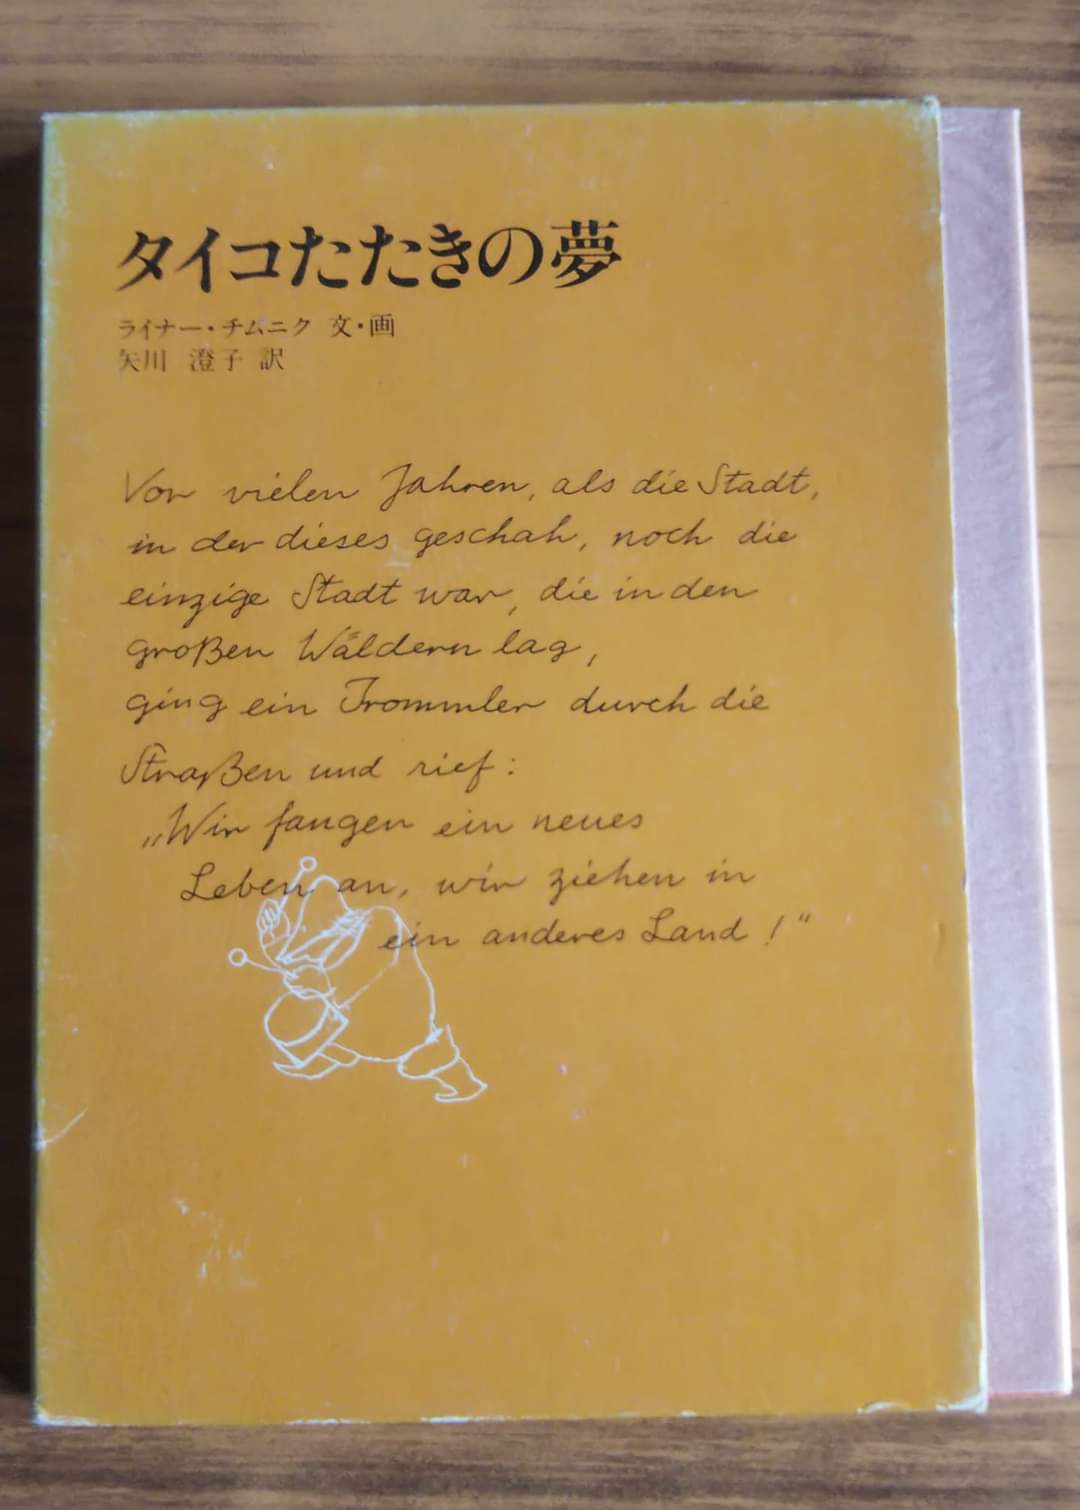 タイコたたきの夢
ライナー・チムニク 文・画
矢川 澄子 訳
Vor vielen Jahren, als die Stadt,
in der dieses geschah, noch die
einzige Stadt war, die in den
großen Wäldern lag,
ging ein Trommler durch die
Straßen und rief:
„Wir fangen ein neues
Leben an, wir ziehen in
ein anderes Land!“